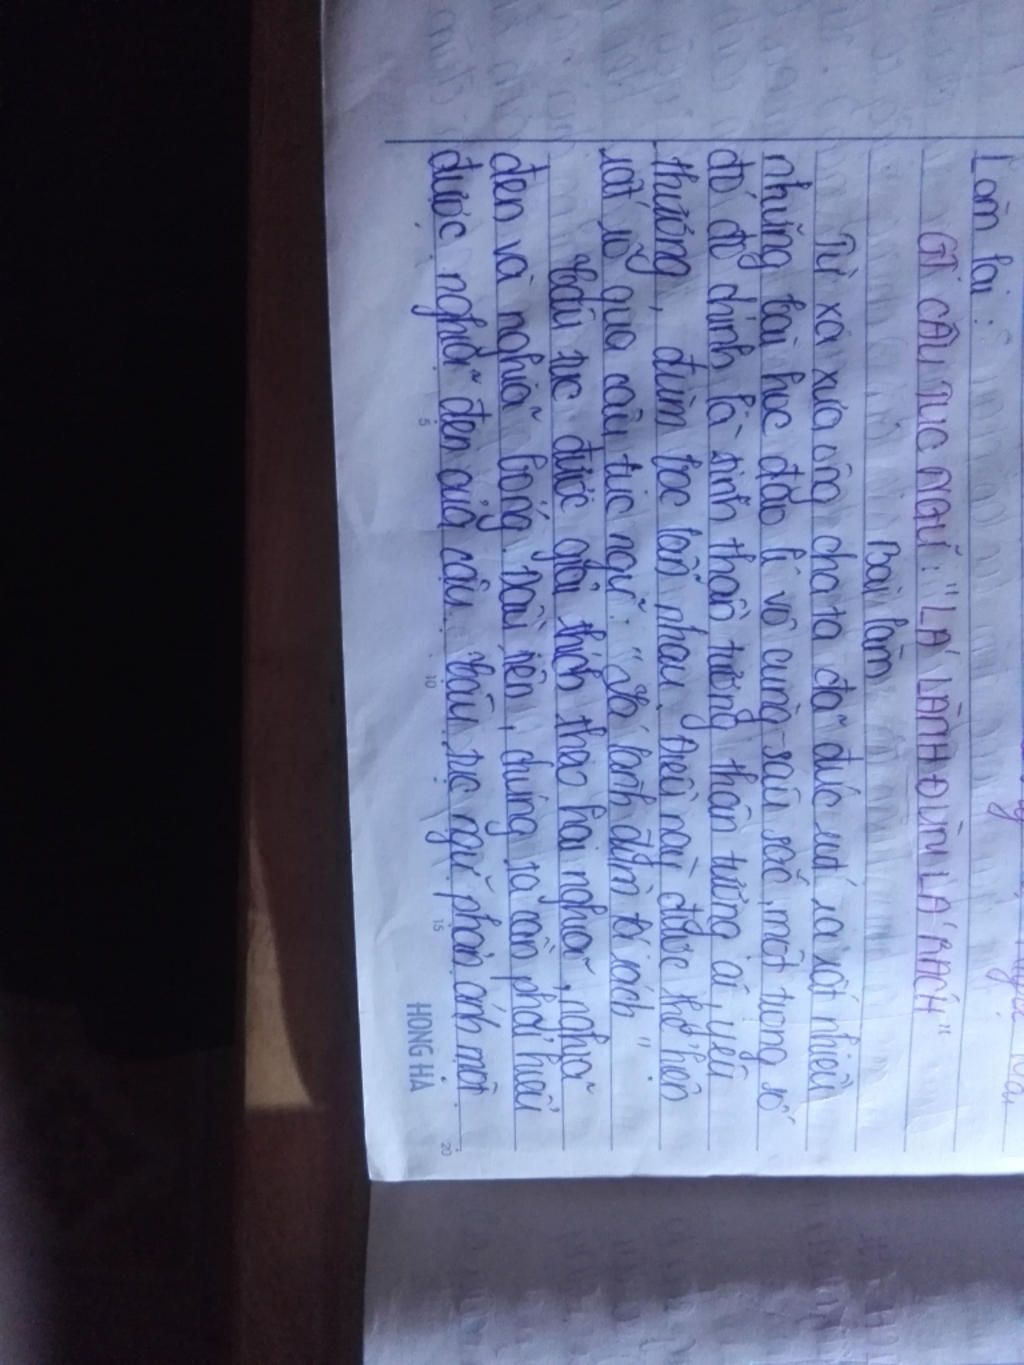 Làm lại:
GT CÂU TỤC NGỮ: "LÁ LÀNH ĐÙM LÁ RÁCH"
Bài làm
Từ xa xưa ông cha ta đã đúc rút ra rất nhiều
những bài học đạo lí vô cùng sâu sắc, một trong số
đó đó chính là tinh thần tương thân tương ái, yêu
thương, đùm bọc lẫn nhau. Điều này được thể hiện
rất rõ qua câu tục ngữ: "Lá lành đùm lá rách".
Câu tục được giải thích theo hai nghĩa, nghĩa
đen và nghĩa bóng. Đầu tiên, chúng ta cần phải hiểu
được nghĩa đen của câu. Câu tục ngữ phản ánh một
5 10 15 20
HONG HA